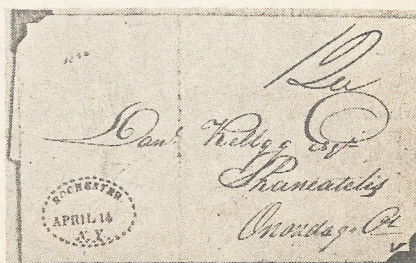 Danl Kellogg Esqr
Skaneatelis
Onondaga Ct
ROCHESTER
APRIL 14
N.Y.